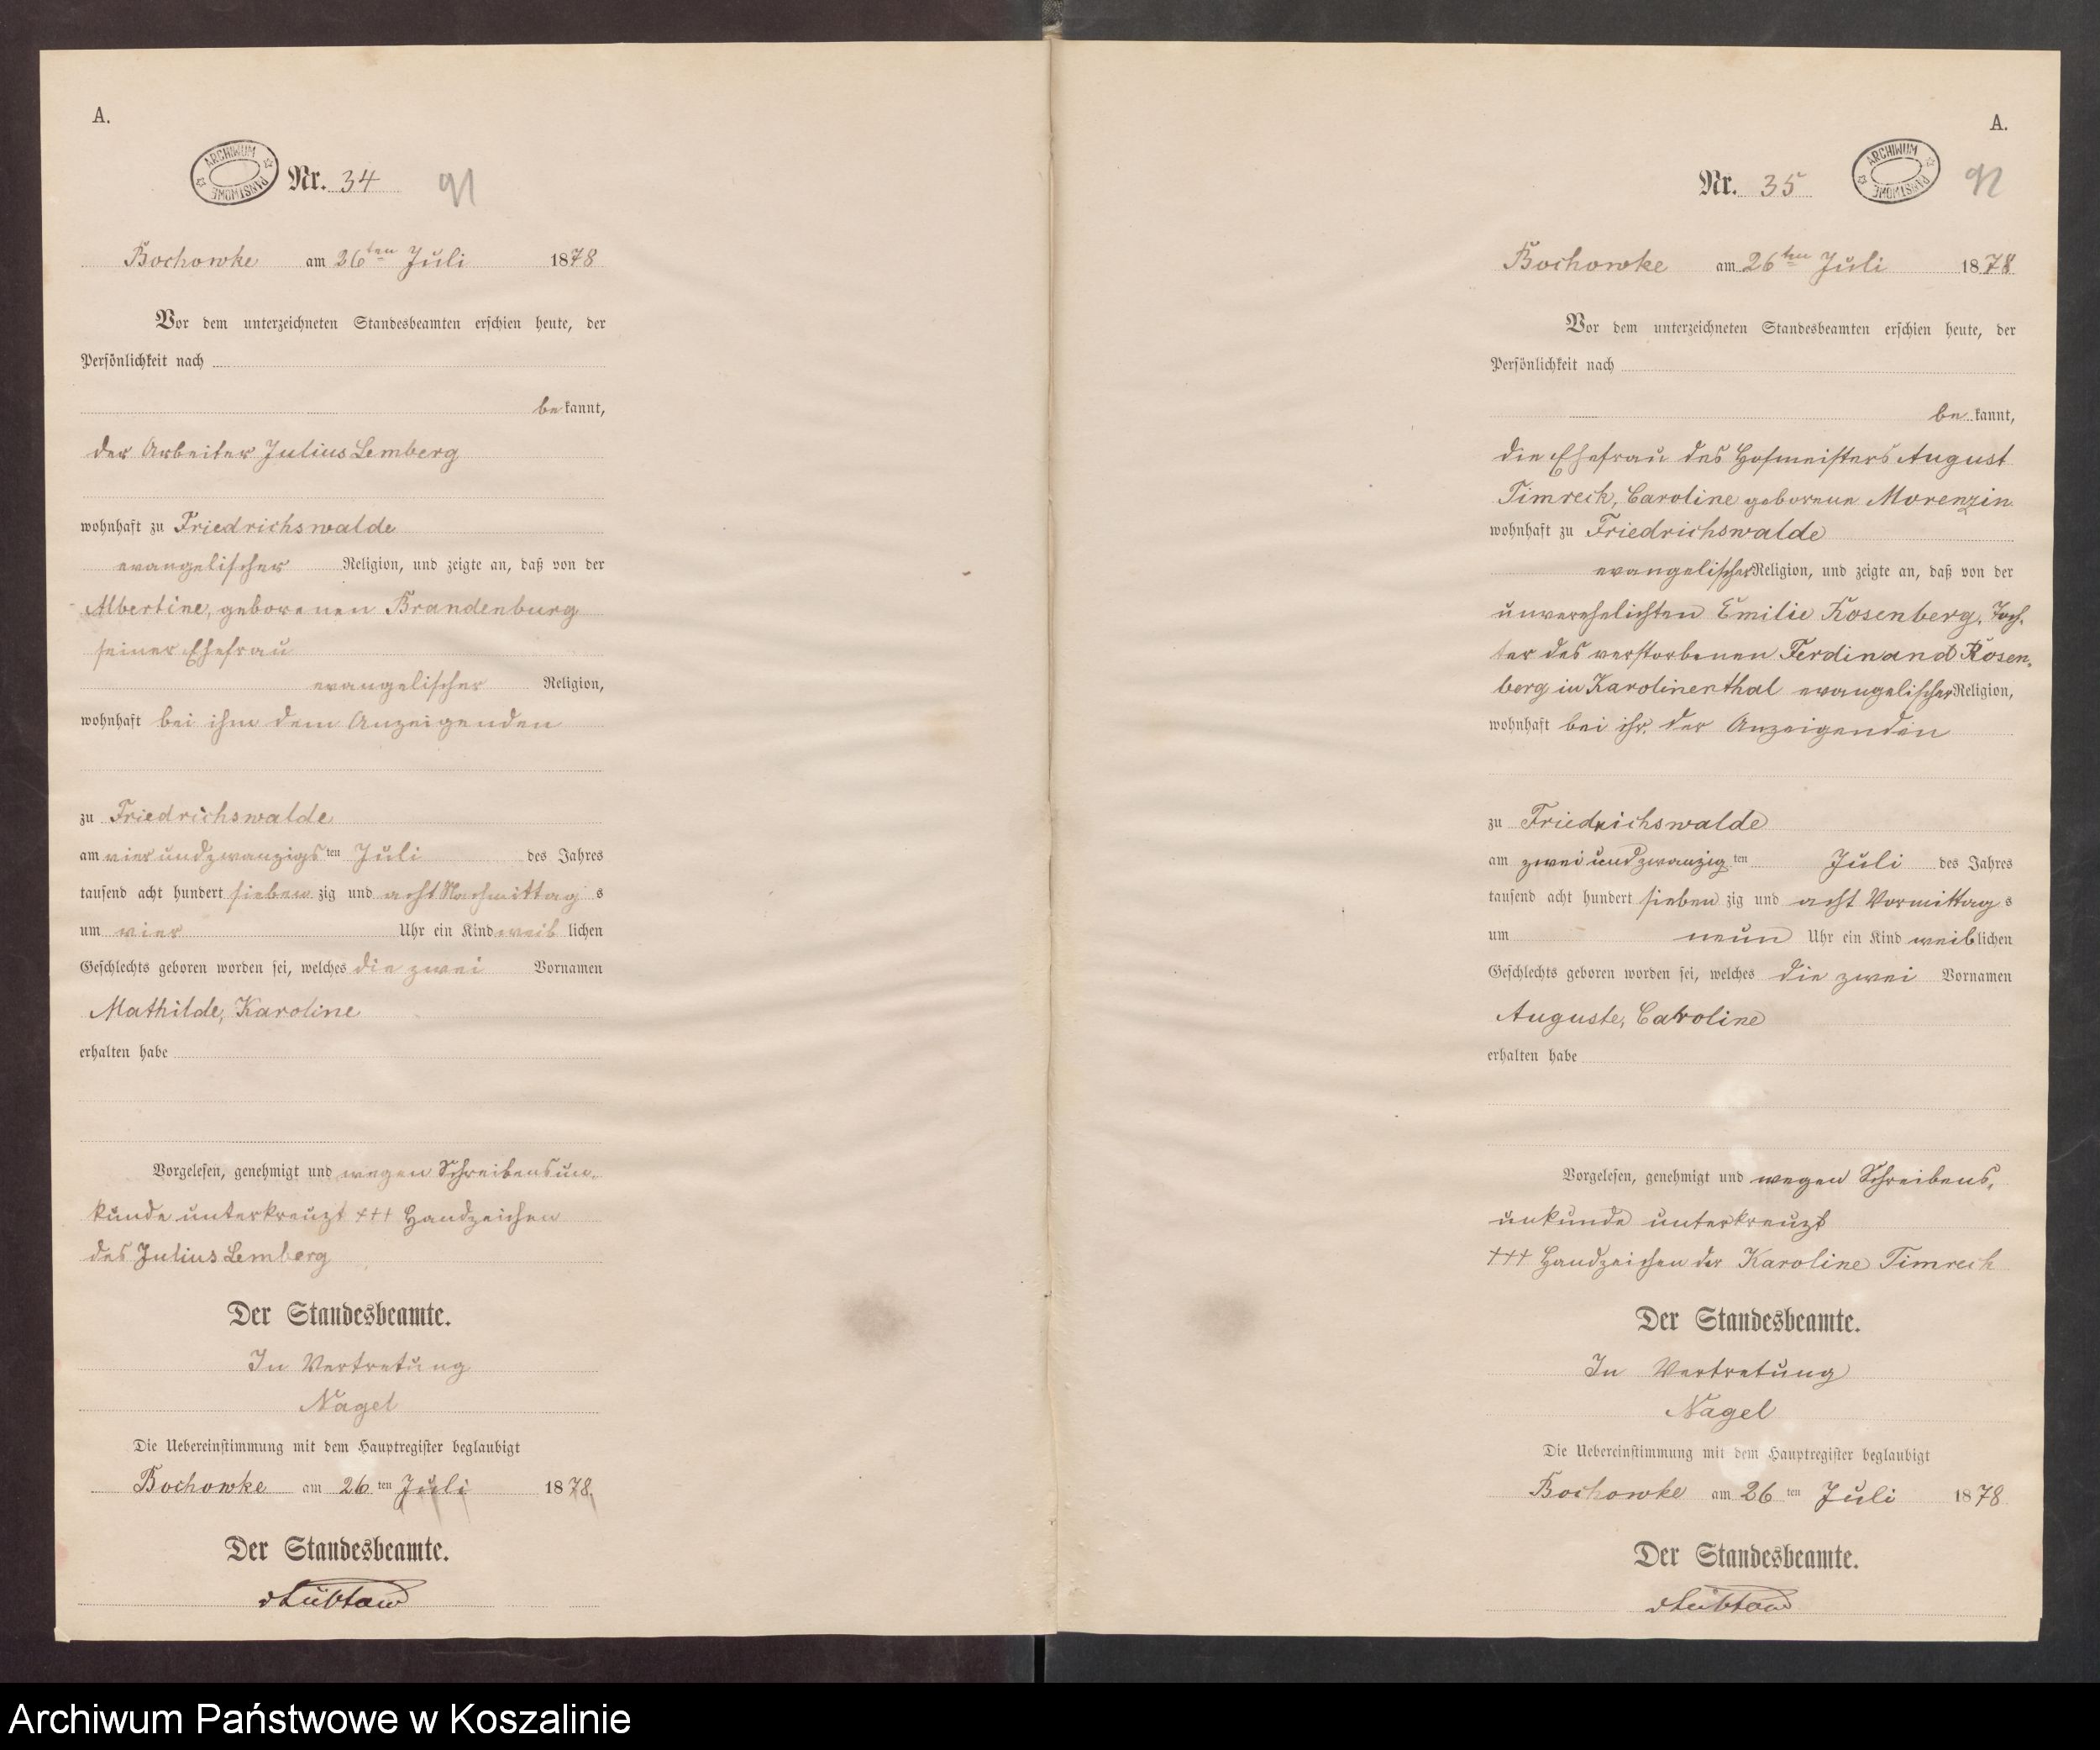 A.
ARCHIWUM PAŃSTWOWE
Nr. 34
91
Bochowke am 26ten Juli 1878
Vor dem unterzeichneten Standesbeamten erschien heute, der
Persönlichkeit nach
bekannt,
der Arbeiter Julius Lemberg
wohnhaft zu Friedrichswalde
evangelischer Religion, und zeigte an, daß von der
Albertine, geborenen Brandenburg
seiner Ehefrau
evangelischer Religion,
wohnhaft bei ihm dem Anzeigenden
zu Friedrichswalde
am vier und zwanzigsten Juli des Jahres
tausend acht hundert siebenzig und acht Nachmittags
um vier Uhr ein Kind weiblichen
Geschlechts geboren worden sei, welches die zwei Vornamen
Mathilde, Karoline
erhalten habe
Vorgelesen, genehmigt und wegen Schreibensun-
kunde unterkreuzt +++ Handzeichen
des Julius Lemberg
Der Standesbeamte.
In Vertretung
Nagel
Die Uebereinstimmung mit dem Hauptregister beglaubigt
Bochowke am 26ten Juli 1878.
Der Standesbeamte.
A.
Nr. 35
ARCHIWUM PAŃSTWOWE
92
Bochowke am 26ten Juli 1878
Vor dem unterzeichneten Standesbeamten erschien heute, der
Persönlichkeit nach
bekannt,
die Ehefrau des Hofmeisters August
Timreck, Caroline geborene Morenzin
wohnhaft zu Friedrichswalde
evangelischer Religion, und zeigte an, daß von der
unverehelichten Emilie Rosenberg, Toch-
ter des verstorbenen Ferdinand Rosen-
berg in Karolinenthal evangelischer Religion,
wohnhaft bei ihr, der Anzeigenden
zu Friedrichswalde
am zwei und zwanzigten Juli des Jahres
tausend acht hundert siebenzig und acht Vormittags
um neun Uhr ein Kind weiblichen
Geschlechts geboren worden sei, welches die zwei Vornamen
Auguste, Caroline
erhalten habe
Vorgelesen, genehmigt und wegen Schreibens-
unkunde unterkreuzt
+++ Handzeichen der Karoline Timreck
Der Standesbeamte.
In Vertretung
Nagel
Die Uebereinstimmung mit dem Hauptregister beglaubigt
Bochowke am 26ten Juli 1878
Der Standesbeamte.
Archiwum Państwowe w Koszalinie